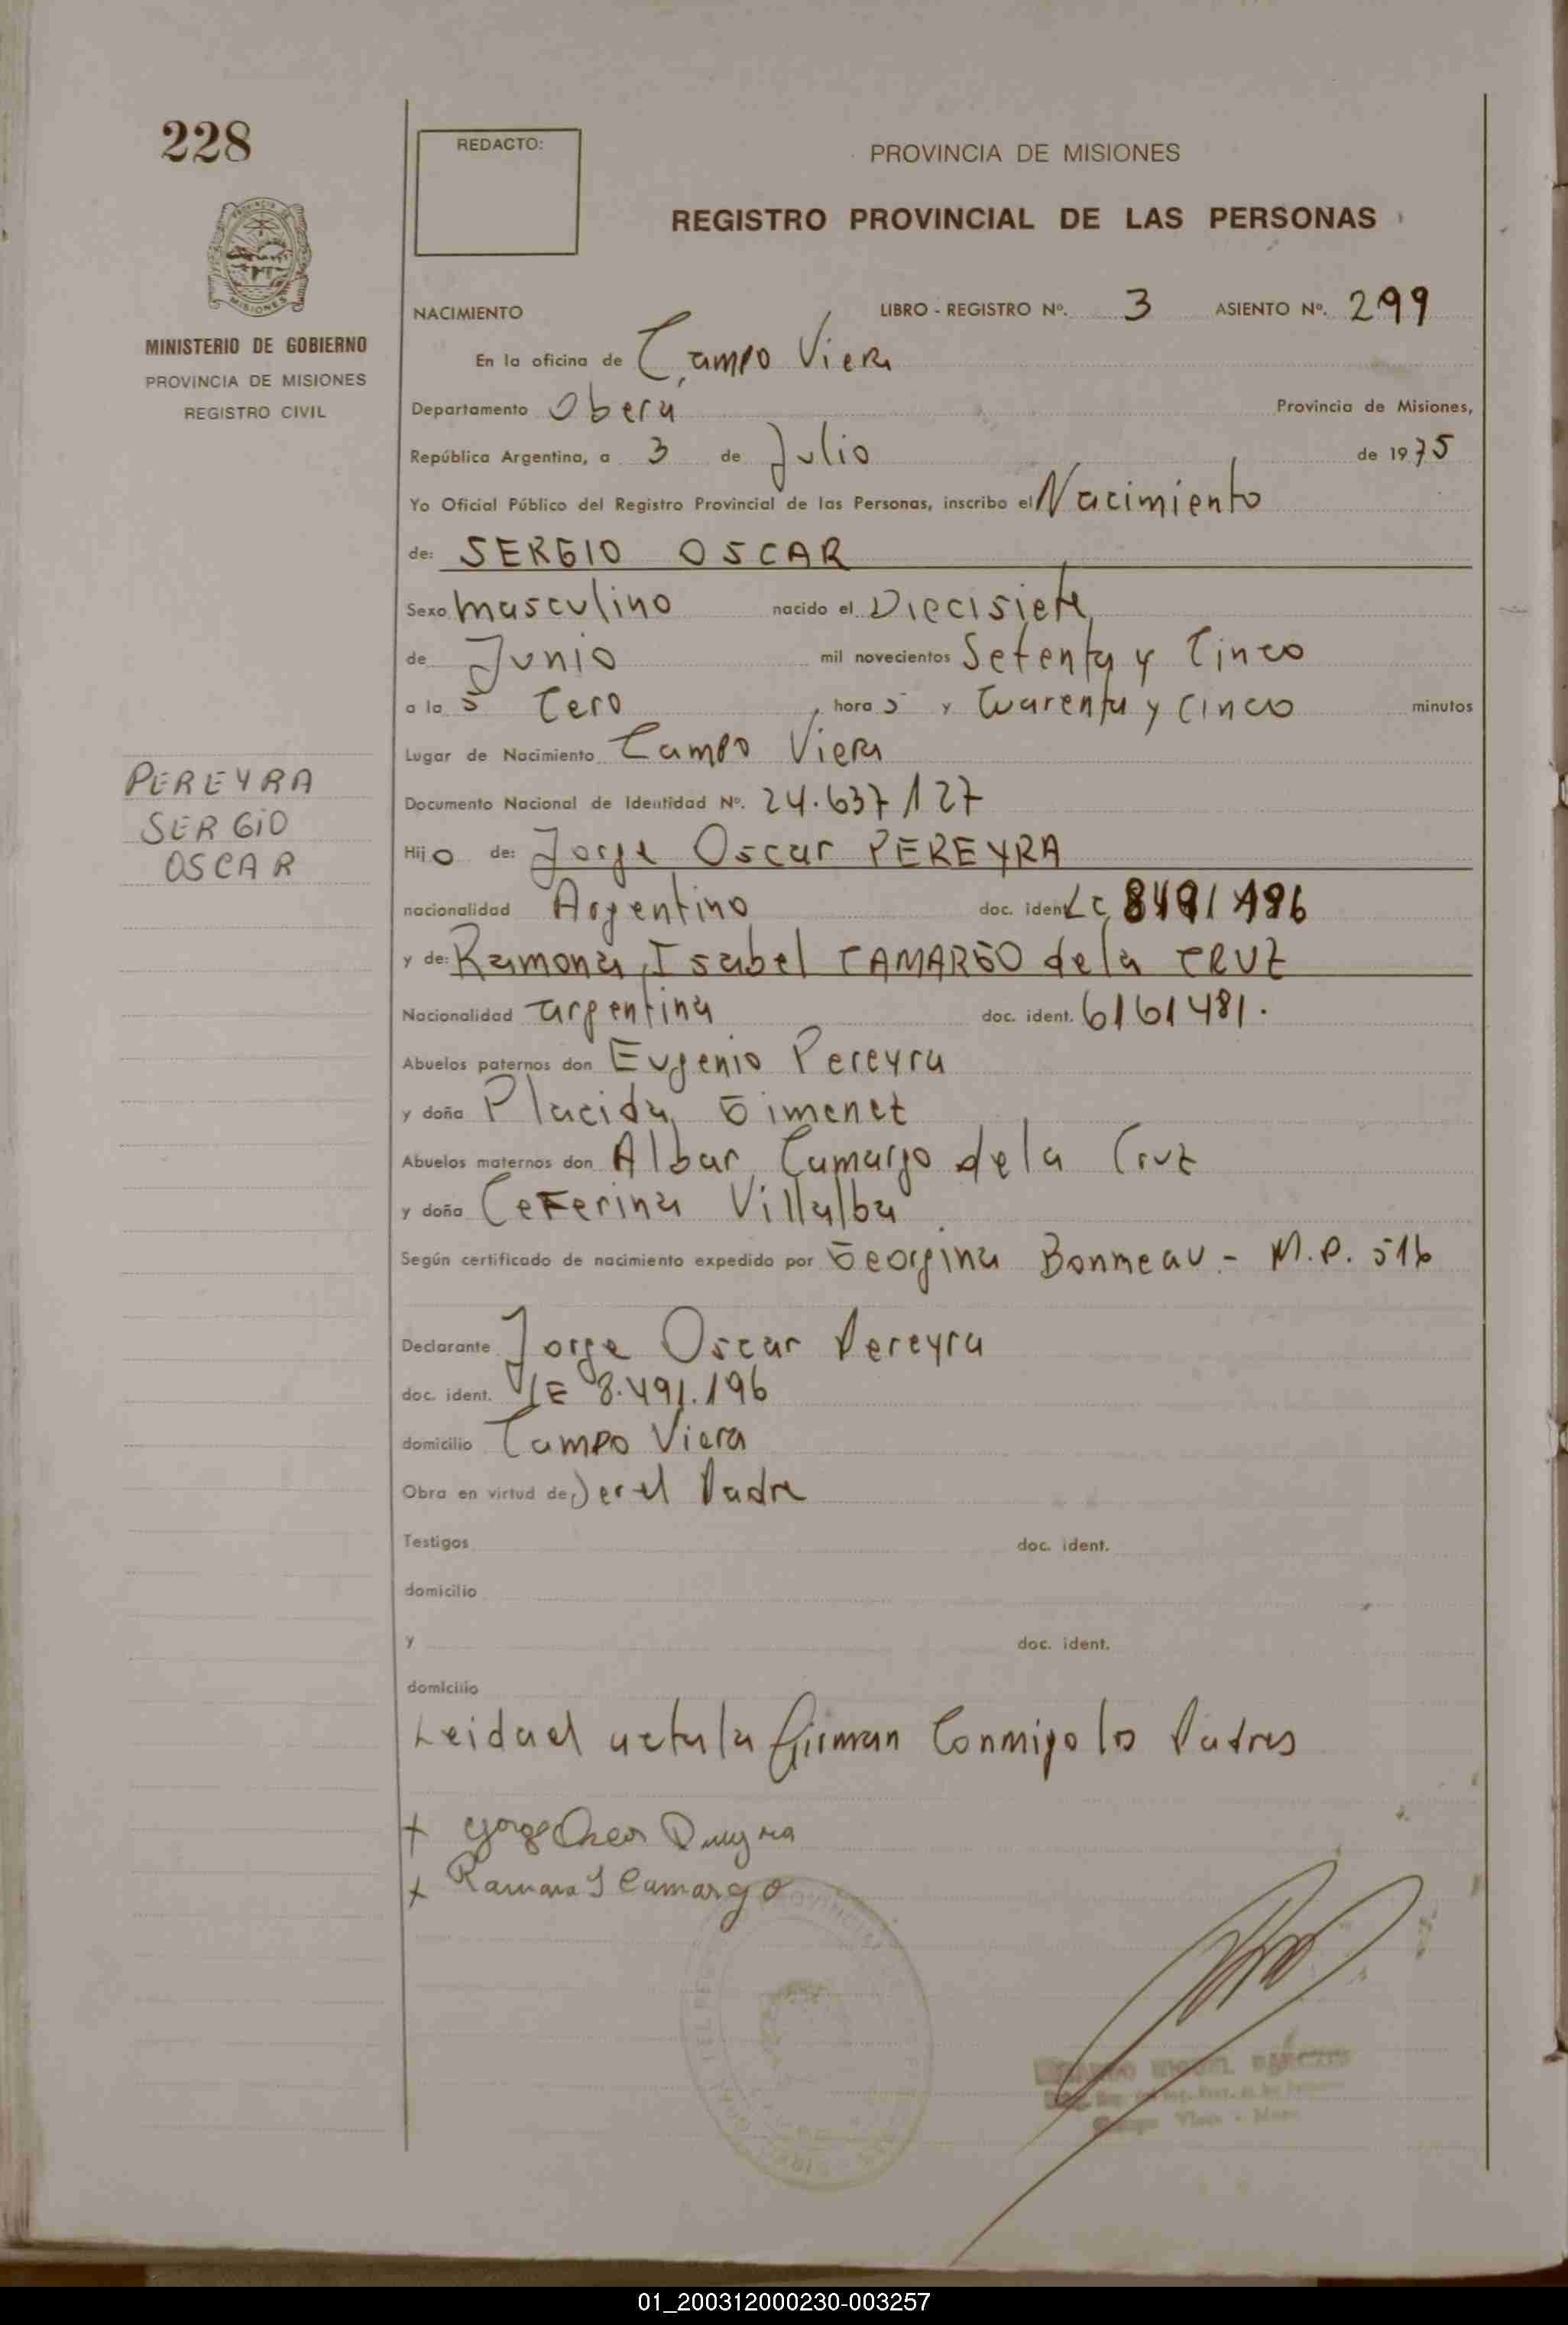 228
REDACTO:
PROVINCIA DE MISIONES
REGISTRO PROVINCIAL DE LAS PERSONAS
MISIONES
MINISTERIO DE GOBIERNO
PROVINCIA DE MISIONES
REGISTRO CIVIL
NACIMIENTO LIBRO - REGISTRO Nº. 3 ASIENTO Nº. 299
En la oficina de Campo Viera
Departamento Obera Provincia de Misiones,
República Argentina, a 3 de Julio de 1975
Yo Oficial Público del Registro Provincial de las Personas, inscribo el Nacimiento
de: SERGIO OSCAR
Sexo masculino nacido el Diecisiete
de Junio mil novecientos Setenta y Cinco
a la s Cero hora s y Cuarenta y cinco minutos
Lugar de Nacimiento Campo Viera
Documento Nacional de Identidad Nº. 24.637/127
PEREYRA
SERGIO
OSCAR
Hijo de: Jorge Oscar PEREYRA
nacionalidad Argentino doc. ident. 8491196
y de: Ramona Isabel CAMARGO de la CRUZ
Nacionalidad argentina doc. ident. 6161481.
Abuelos paternos don Eugenio Pereyra
y doña Placida Gimenez
Abuelos maternos don Albar Camargo de la Cruz
y doña Ceferina Villalba
Según certificado de nacimiento expedido por Georgina Bonmeau - M.P. 516
Declarante Jorge Oscar Pereyra
doc. ident. LE 8.491.196
domicilio Campo Viera
Obra en virtud de Ser el Padre
Testigos doc. ident.
domicilio
y doc. ident.
domicilio
Leida el acta la firman Conmigo los Padres
+ Jorge Oscar Pereyra
+ Ramona I Camargo
MIGUEL
Campo Viera - Mnes.
01_200312000230-003257